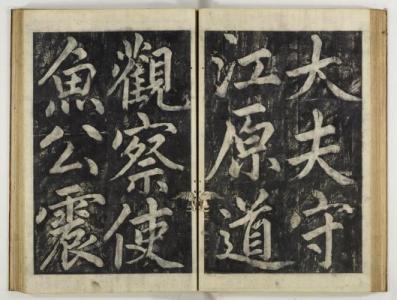 大夫守
江原道
觀察使
魚公震